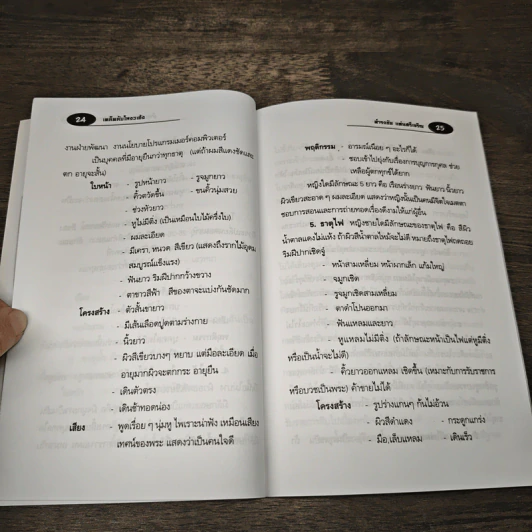 24
เคล็ดลับโหงวเฮ้ง
งานฝ่ายพัฒนา งานนโยบายโปรแกรมเมอร์คอมพิวเตอร์
เป็นบุคคลที่มีอายุยืนกว่าทุกธาตุ (แต่ถ้าผมสีแดงขัดและ
ตา อายุจะสั้น)
ใบหน้า - รูปหน้ายาว - รูจมูกยาว
- คิ้วตวัดขึ้น - ขนคิ้วนุ่มสวย
- ช่วงหัวยาว
- หูไม่มีติ่ง (เป็นเหมือนใบไม้ครึ่งใบ)
- ผมละเอียด
- มีเครา, หนวด สีเขียว (แสดงถึงรากไม้อุดม
สมบูรณ์แข็งแรง)
- ฟันยาว ริมฝีปากกว้างขวาง
- ตาขาวสีฟ้า สีของตาจะแบ่งกันชัดมาก
โครงสร้าง - ตัวสั้นขายาว
- มีเส้นเลือดปูดตามร่างกาย
- นิ้วยาว
- ผิวสีเขียวบางๆ หยาบ แต่มือละเอียด เมื่อ
อายุมากผิวจะตกกระ อายุยืน
- เดินตัวตรง
- เดินช้าทอดน่อง
เสียง - พูดเรื่อย ๆ นุ่มหู ไพเราะน่าฟัง เหมือนเสียง
เทศน์ของพระ แสดงว่าเป็นคนใจดี
25
พฤติกรรม - อารมณ์เนือย ๆ อะไรก็ได้
- ชอบเข้าไปยุ่งกับเรื่องการบุญการกุศล ช่วย
เหลือผู้ตกทุกข์ได้ยาก
หญิงใดมีลักษณะ 5 ยาว คือ เรือนร่างยาว ฟันยาว นิ้วยาว
ผิวเขียวสะอาด ๆ ผมละเอียด แสดงว่าหญิงนั้นเป็นคนมีจิตใจเมตตา
ชอบการสอนและการถ่ายทอดเรื่องดีงามให้แก่ผู้อื่น
5. ธาตุไฟ หญิงชายใดมีลักษณะของธาตุไฟ คือ สีผิว
น้ำตาลแดงไม่แห้ง ถ้าผิวสีน้ำตาลไหม้จะไม่ดี หมายถึงธาตุไฟถดถอย
ริมฝีปากเชิดจู๋
- หน้าสามเหลี่ยม หน้าผากเล็ก แก้มใหญ่
- จมูกเชิด
- รูจมูกเชิดสามเหลี่ยม
- ตาดำโปนออกมา
- ฟันแหลมและยาว
- หูแหลมไม่มีติ่ง (ถ้าลักษณะหน้าเป็นไฟแต่หูมีติ่ง
หรือเป็นน้ำจะไม่ดี)
- คิ้วยาวออกแหลม เชิดขึ้น (เหมาะกับการรับราชการ
หรือบวชเป็นพระ) ค้าขายไม่ได้
โครงสร้าง - รูปร่างแกนๆ กันไม่อ้วน
- ผิวสีดำแดง - กระดูกแกร่ง
- มือ,เล็บแหลม - เดินเร็ว